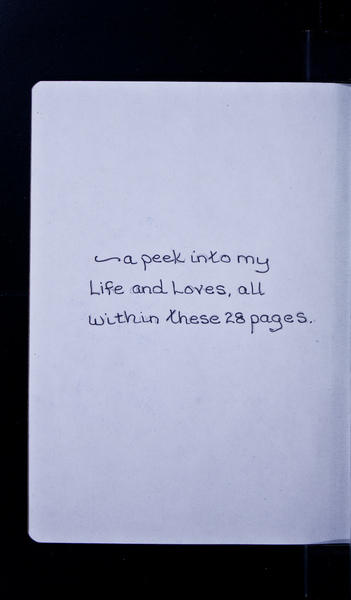 ~a peek into my
Life and Loves, all
within these 28 pages.